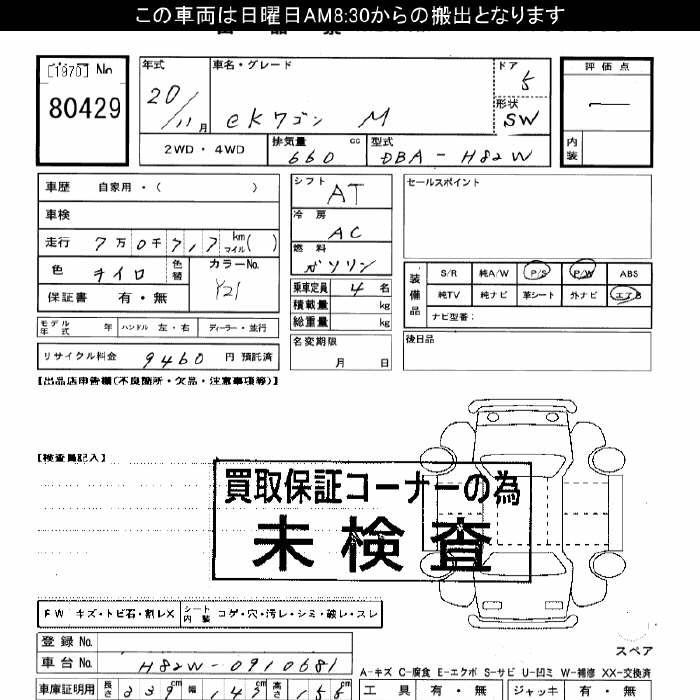 この車両は日曜日AM8:30からの搬出となります
[1970] No 年式 車名・グレード ドア 評価点
80429 20/11月 eKワゴン M 5
形状 SW
2WD・4WD 排気量 660 cc 型式 DBA-H82W 内装
車歴 自家用・( ) シフト AT セールスポイント
車検 冷房 AC
走行 7万0千7,17 km マイル( ) 燃料 ガソリン
色 キイロ 色替 カラーNo. Y21 装備品 S/R 純A/W P/S P/W ABS
保証書 有・無 乗車定員 4名 純TV 純ナビ 革シート 外ナビ エアB
積載量 kg ナビ型番:
モデル年式 年 ハンドル 左・右 ディーラー・並行 総重量 kg
リサイクル料金 9460 円 預託済 名変期限 月 日 後日品
【出品店申告欄(不良箇所・欠品・注意事項等)】
【検査員記入】
買取保証コーナーの為
未検査
FW キズ・トビ石・割レX シート内装 コゲ・穴・汚レ・シミ・破レ・スレ
登録No.
スペア
車台No. H82W-0910681
A-キズ C-腐食 E-エクボ S-サビ U-凹ミ W-補修 XX-交換済
車庫証明用 長さ 339cm 幅 147cm 高さ 155cm 工具 有・無 ジャッキ 有・無